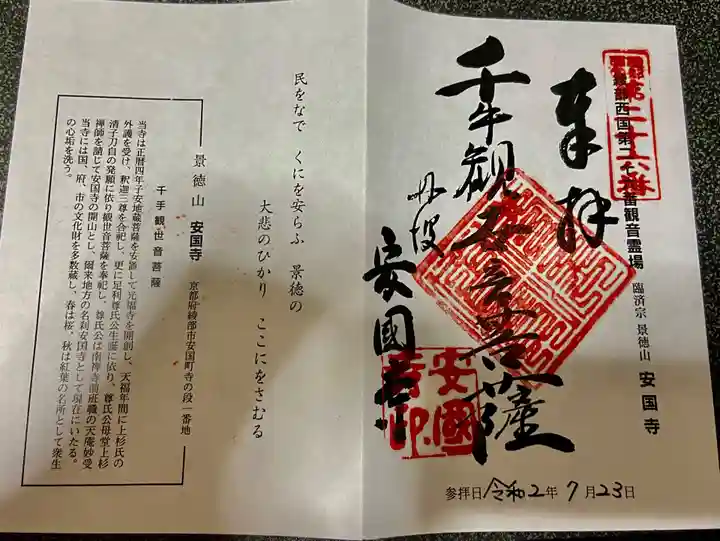 奉拝
臨済宗 景徳山 安国寺
千手観世音菩薩
丹波
安國寺
安國
寺印
参拝日 令和2年 7月23日
民をなで くにを安らふ 景徳の
大悲のひかり ここにをさむる
景徳山 安国寺
京都府綾部市安国寺町寺の段一番地
千手観世音菩薩
当寺は正暦四年子安地蔵菩薩を安置して光福寺を開創し、天福年間に上杉氏の
外護を受け、釈迦三尊を合祀し、更に足利尊氏公生誕に依り、尊氏公母堂上杉
清子刀自の発願に依り観世音菩薩を奉祀し、尊氏公は南禅寺前班職の天庵妙受
禅師を請じて安国寺の開山とし、爾来地方の名刹安国寺として現在にいたる。
当寺には国、府、市の文化財を多数蔵し、春は桜、秋は紅葉の名所として衆生
の心垢を洗う。